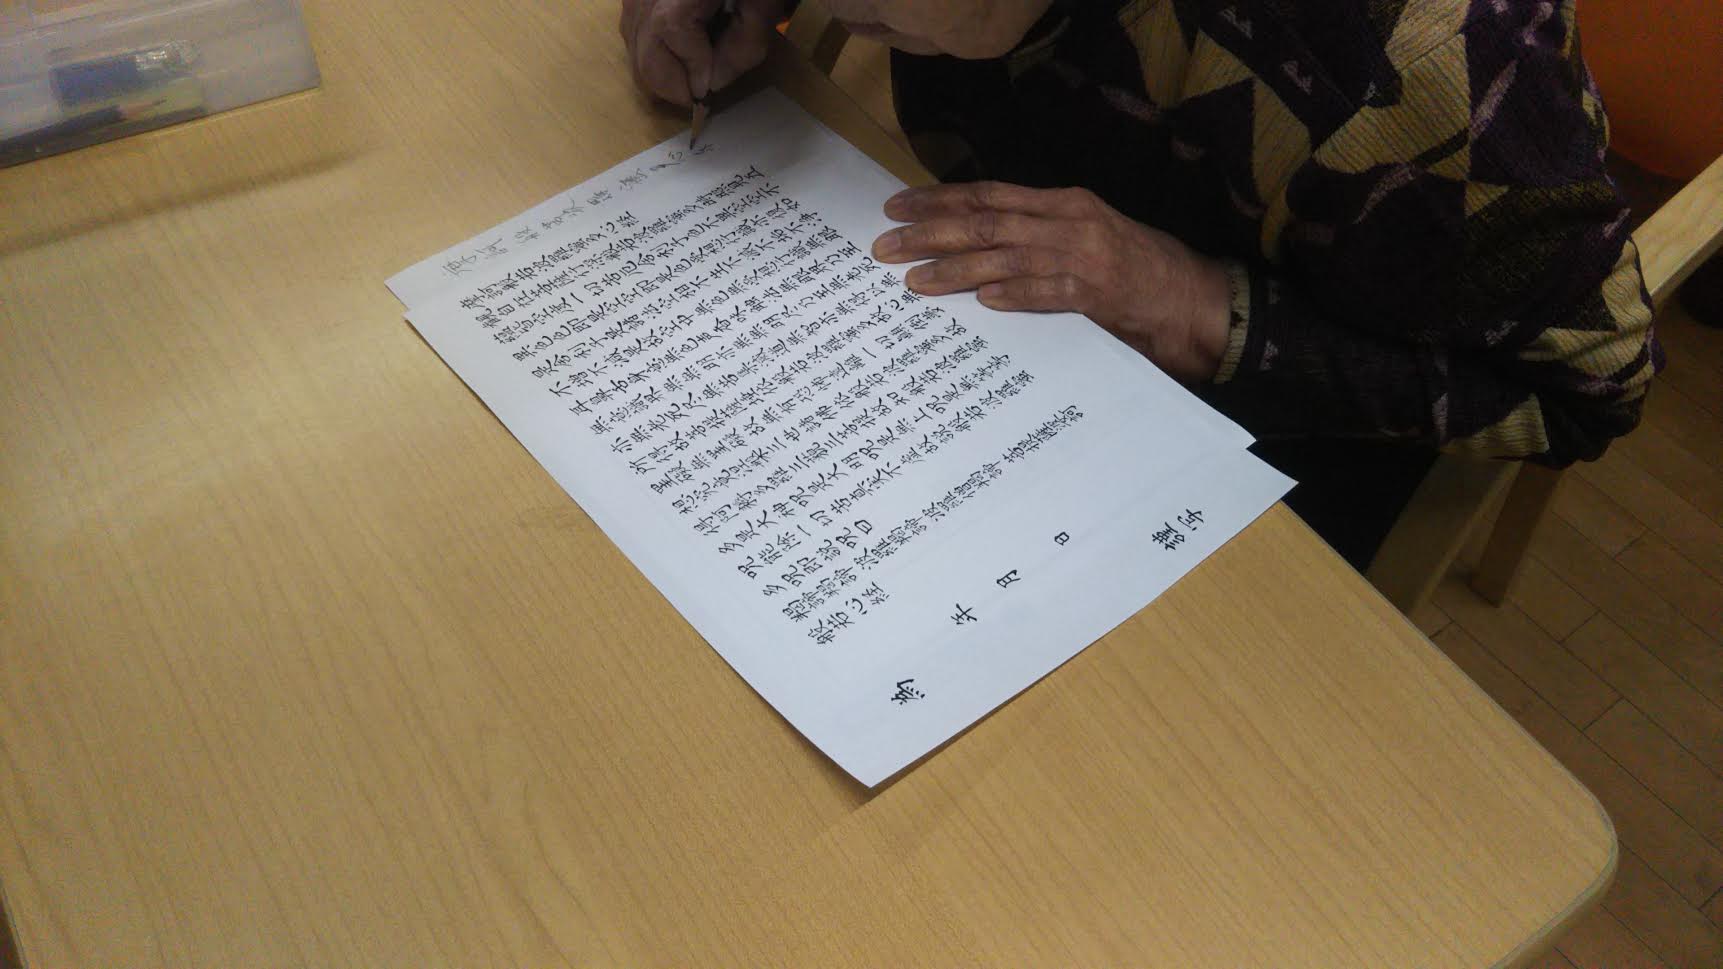 摩訶般若波羅蜜多心
摩訶般若波羅蜜多心経
観自在菩薩行深般若波羅蜜多時照見五
蘊皆空度一切苦厄舎利子色不異空空不
異色色即是空空即是色受想行識亦復如
是舎利子是諸法空相不生不滅不垢不浄
不増不減是故空中無色無受想行識無眼
耳鼻舌身意無色声香味触法無眼界
無意識界無無明亦無無明尽乃至無老死
亦無老死尽無苦集滅道無智亦無得以無
所得故菩提薩埵依般若波羅蜜多故心無
罣礙無罣礙故無有恐怖遠離一切顛倒夢
想究竟涅槃三世諸仏依般若波羅蜜多故
得阿耨多羅三藐三菩提故知般若波羅蜜
多是大神呪是大明呪是無上呪是無等等
呪能除一切苦真実不虚故説般若波羅蜜
多呪即説呪曰
羯諦羯諦波羅羯諦波羅僧羯諦菩提薩婆訶
般若心経
年 月 日
為